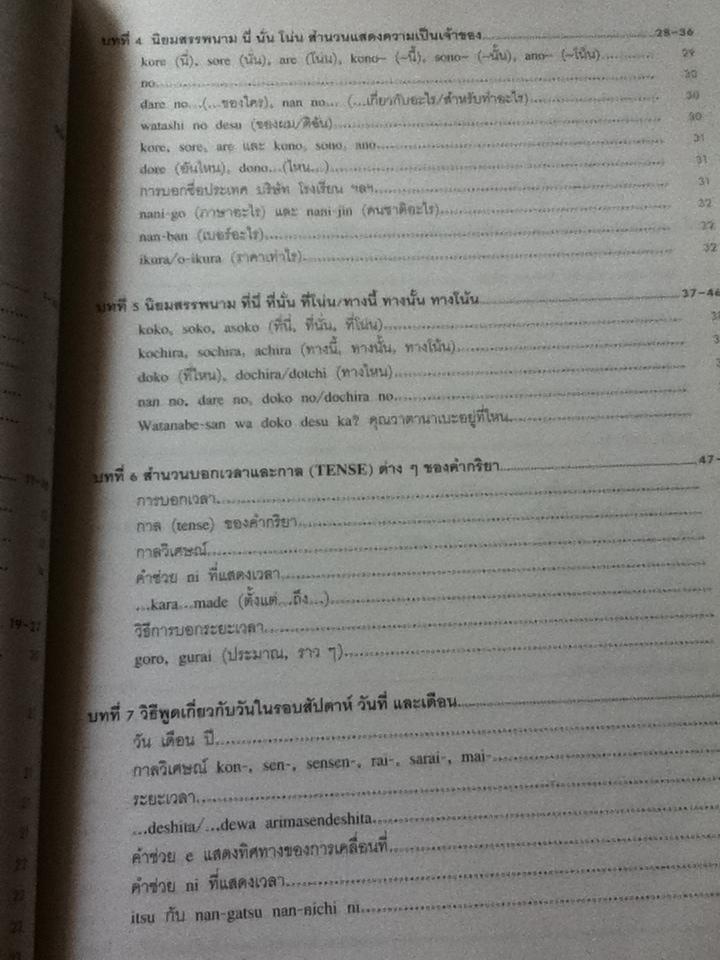 บทที่ 4 นิยมสรรพนาม นี่ นั่น โน่น สำนวนแสดงความเป็นเจ้าของ 28-36
kore (นี่), sore (นั่น), are (โน่น), kono- (~นี้), sono- (~นั้น), ano- (~โน้น) 29
no 30
dare no...(...ของใคร), nan no... (...เกี่ยวกับอะไร/สำหรับทำอะไร) 30
watashi no desu (ของผม/ดิฉัน) 30
kore, sore, are และ kono, sono, ano 31
dore (อันไหน), dono...(ไหน...) 31
การบอกชื่อประเทศ บริษัท โรงเรียน ฯลฯ 31
nani-go (ภาษาอะไร) และ nani-jin (คนชาติอะไร) 32
nan-ban (เบอร์อะไร) 32
ikura/o-ikura (ราคาเท่าไร) 32
บทที่ 5 นิยมสรรพนาม ที่นี่ ที่นั่น ที่โน่น/ทางนี้ ทางนั้น ทางโน้น 37-46
koko, soko, asoko (ที่นี่, ที่นั่น, ที่โน่น)
kochira, sochira, achira (ทางนี้, ทางนั้น, ทางโน้น)
doko (ที่ไหน), dochira/dotchi (ทางไหน)
nan no, dare no, doko no/dochira no
Watanabe-san wa doko desu ka? คุณวาตานาเบะอยู่ที่ไหน
บทที่ 6 สำนวนบอกเวลาและกาล (TENSE) ต่าง ๆ ของคำกริยา 47-
การบอกเวลา
กาล (tense) ของคำกริยา
กาลวิเศษณ์
คำช่วย ni ที่แสดงเวลา
...kara...made (ตั้งแต่...ถึง...)
วิธีการบอกระยะเวลา
goro, gurai (ประมาณ, ราว ๆ)
บทที่ 7 วิธีพูดเกี่ยวกับวันในรอบสัปดาห์ วันที่ และเดือน
วัน เดือน ปี
กาลวิเศษณ์ kon-, sen-, sensen-, rai-, sarai-, mai-
ระยะเวลา
...deshita/...dewa arimasendeshita
คำช่วย e แสดงทิศทางของการเคลื่อนที่
คำช่วย ni ที่แสดงเวลา
itsu กับ nan-gatsu nan-nichi ni